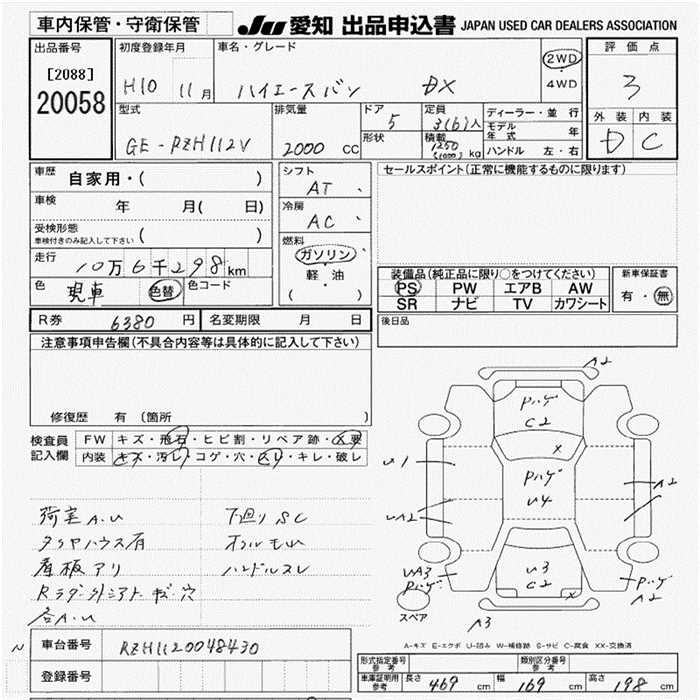 車内保管・守衛保管 JU 愛知 出品申込書 JAPAN USED CAR DEALERS ASSOCIATION
出品番号
[2088]
20058
初度登録年月
H10 11月
車名・グレード
ハイエースバン DX
2WD
・
4WD
評価点
3
外装 内装
D C
型式
GE-RZH112V
排気量
2000 cc
ドア
5
形状
定員
3(6)人
積載
1250
(1000) kg
ディーラー・並行
モデル
年式 年
ハンドル 左・右
車歴 自家用・( )
車検 年 月( 日)
受検形態
車検付きのみ記入して下さい ( )
走行
10万6千298km
色 現車 色替 色コード
シフト
AT
冷房
AC
燃料
ガソリン
・
軽・油
( )
セールスポイント(正常に機能するものに限ります)
装備品(純正品に限り○をつけてください)
PS PW エアB AW
SR ナビ TV カワシート
新車保証書
有・無
R券 6380 円 名変期限 月 日
後日品
注意事項申告欄(不具合内容等は具体的に記入して下さい)
修復歴 有(箇所 )
検査員
記入欄
FW キズ・飛石・ヒビ割・リペア跡・X要
内装 キズ・汚レ・コゲ・穴・スレ・キレ・破レ
荷室A.U 下廻りSC
タイヤハウス有 オイルモレ
床板アリ ハンドルスレ
各A.U
A2
Pハゲ
C2
X
U1
Pハゲ
U4
A2
UA2
UA3
Pハゲ
U3
C2
X
Pハゲ
A2
スペア
A3
A-キズ E-エクボ U-凹み W-補修跡 S-サビ C-腐食 XX-交換済
車台番号 RZH1120048430
登録番号
型式指定番号
参考
類別区分番号
参考
車庫証明用
参考
長さ 469 cm 幅 169 cm 高さ 198 cm